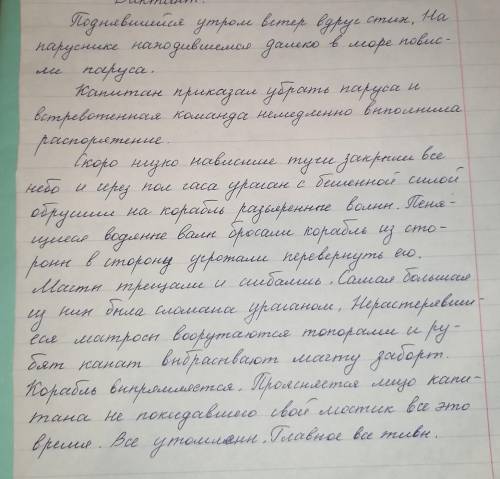 Диктант.
Поднявшейся утром ветер вдруг стих. На
паруснике находившемся далеко в море повис-
ли паруса.
Капитан приказал убрать паруса и
встревоженная команда немедленно выполнила
распоряжение.
Скоро низко нависшие тучи закрыли все
небо и через пол часа ураган с бешенной силой
обрушил на корабль разъяренные волны. Пеня-
щиеся водяные валы бросали корабль из сто-
роны в сторону угрожали перевернуть его.
Мачты трещали и сгибались. Самая большая
из них была сломана ураганом. Нерастерявши-
еся матросы вооружаются топорами и ру-
бят канат выбрасывают мачту заборт.
Корабль выпрямляется. Проясняется лицо капи-
тана не покидавшего свой мостик все это
время. Все утомлены. Главное все живы.